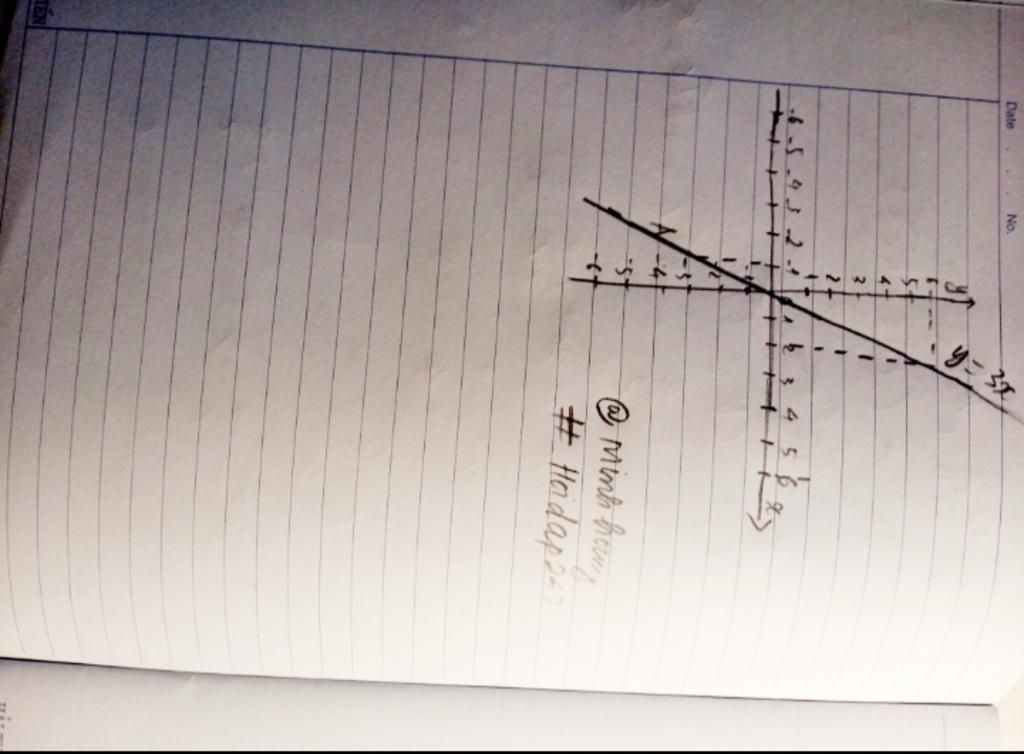 Date . . . No.
y
y = 3x
6
5
4
3
2
1
-6 -5 -4 -3 -2 -1 0 1 2 3 4 5 6 x
A
-2
-3
-4
-5
-6
@ Minh
# Hoidap247